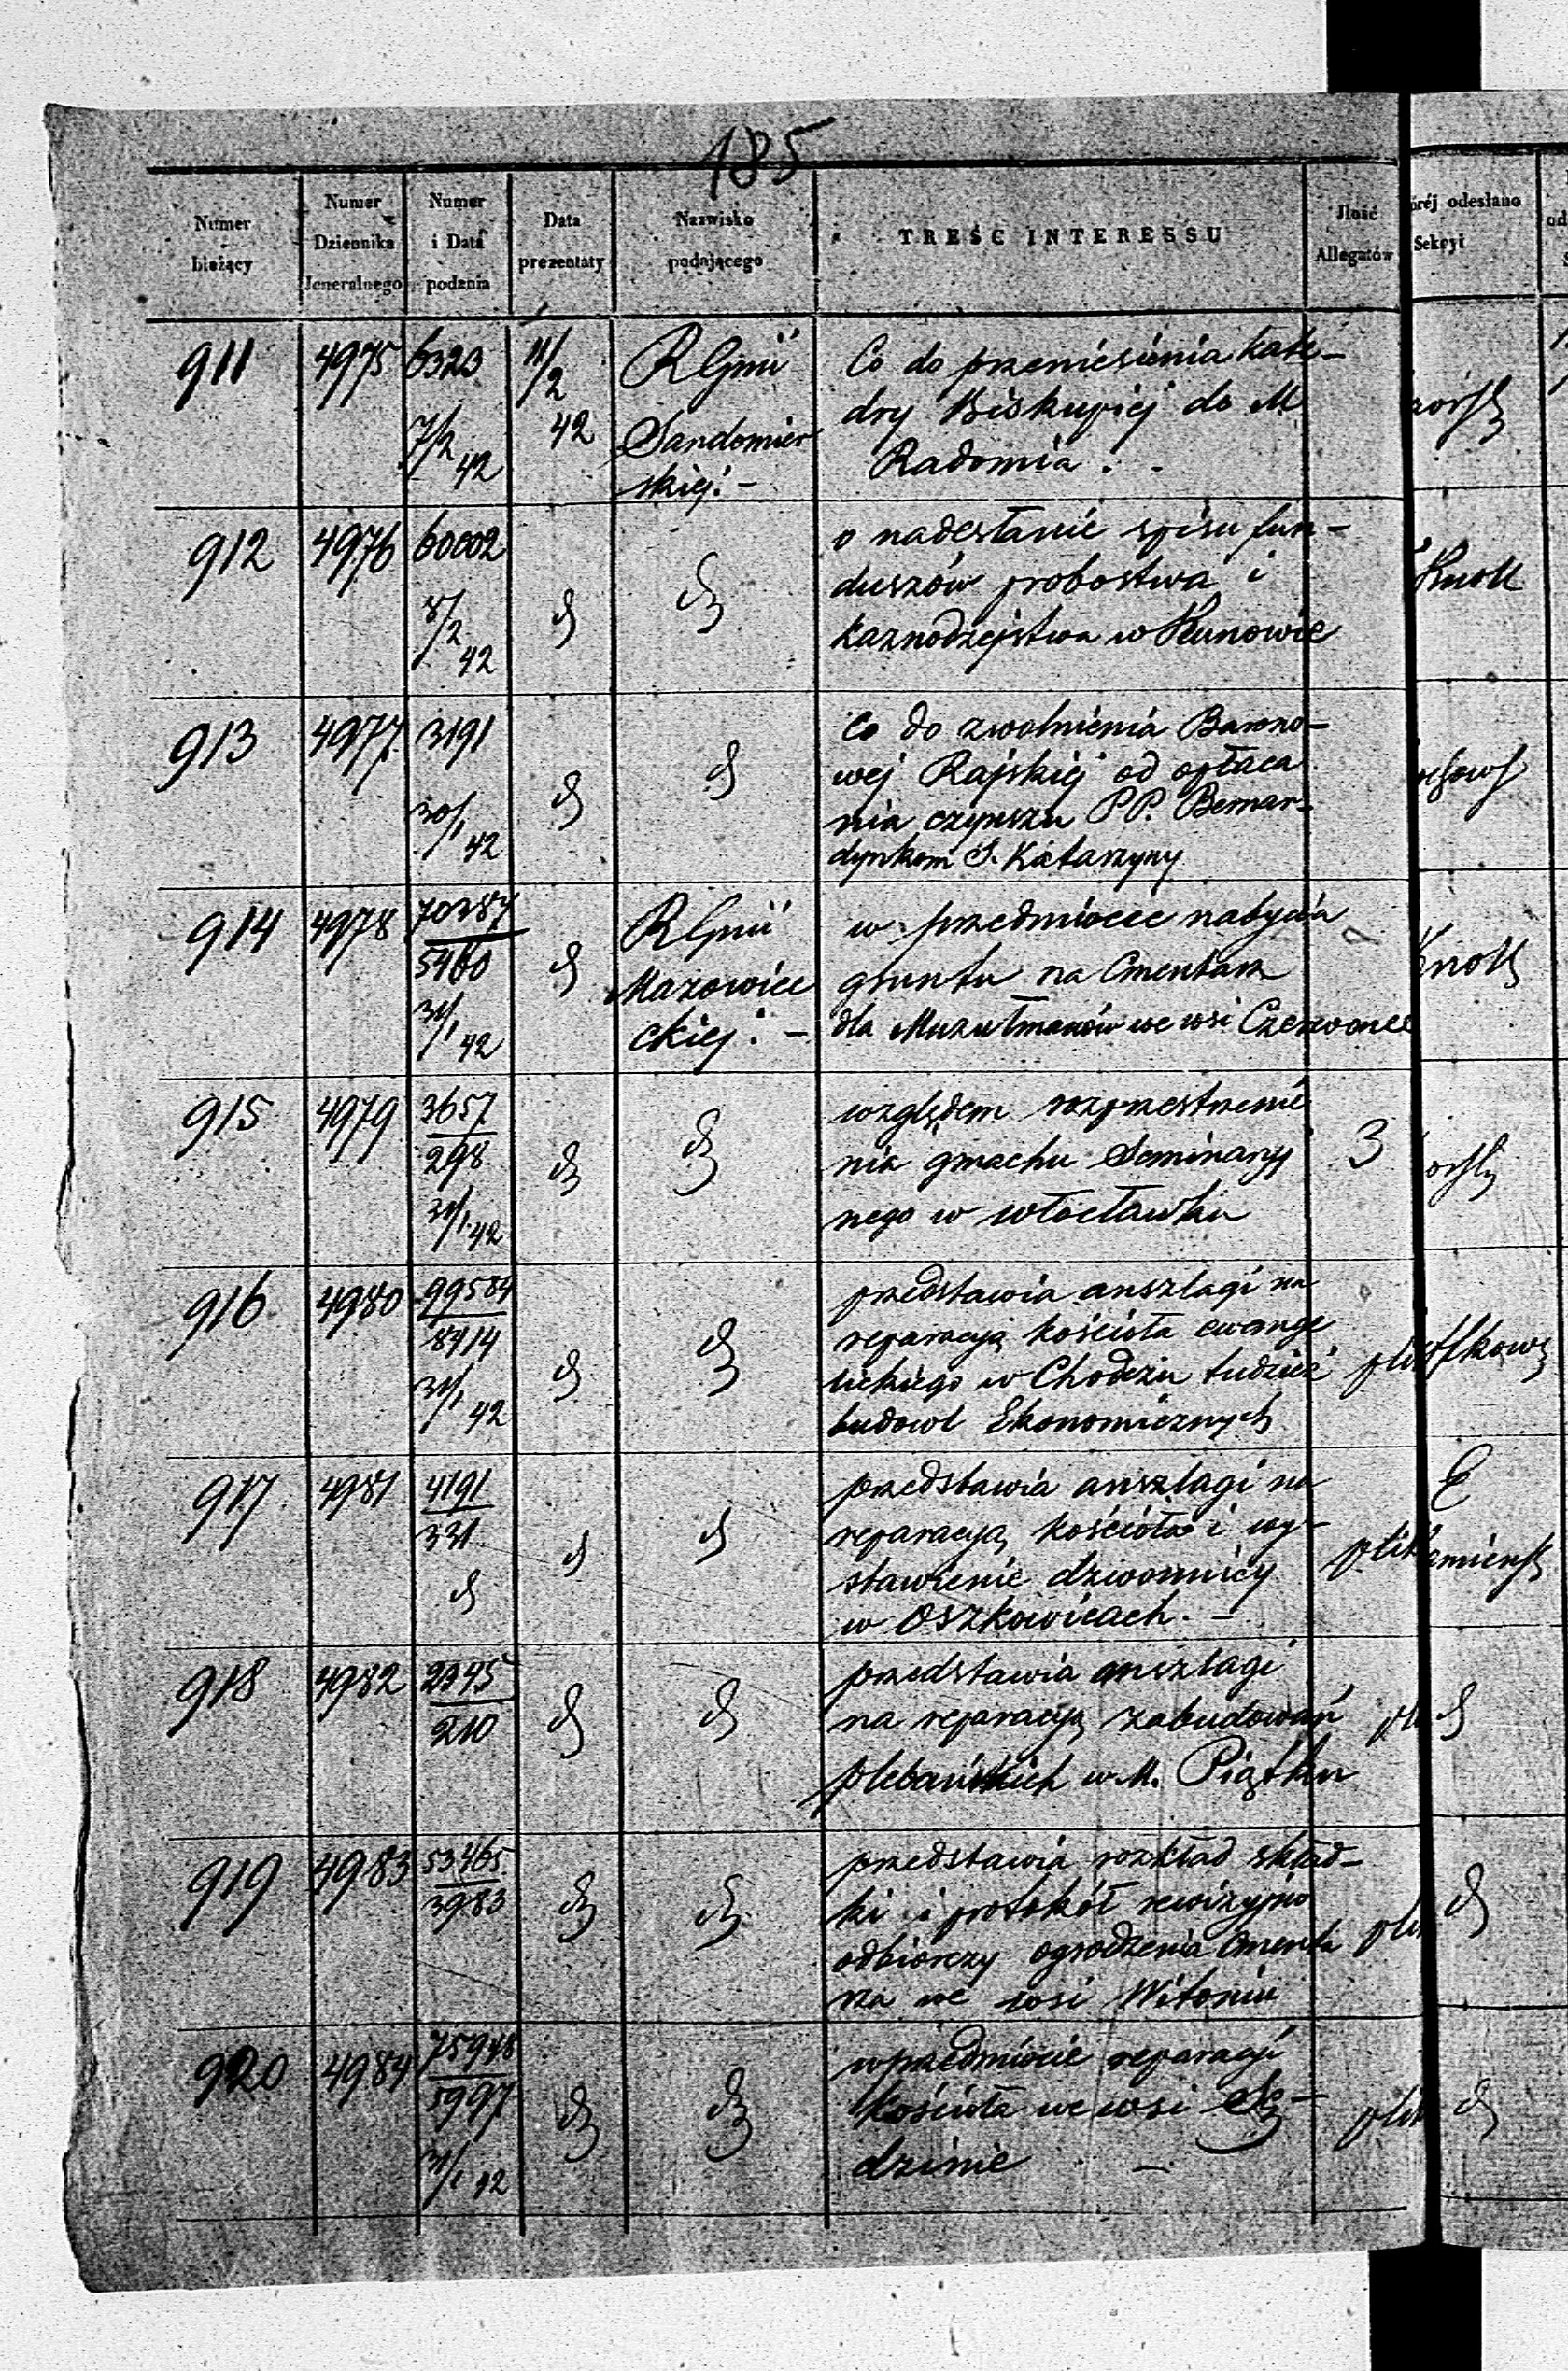 185
Numer bieżący
Numer Dziennika Jeneralnego
Numer i Data podania
Data prezentaty
Nazwisko podającego
TREŚĆ INTERESSU
Ilość Allegatów
órėj odesłano
Sekcyi
911 4975 6323 7/2 42 11/2 42
R Gjnii
Sandomier
skiej. –
Co do przeniesienia Kate–
dry Biskupiej do M
Radomia.
912 4976 60002 8/2 42 d d
o nadesłanie spisu fun–
duszów probostwa i
kaznodziejstwa w Kunowie
Knoll
913 4977 3191 30/1 42 d d
Co do zwolnienia Barono–
wej Rajskiej od opłaca
nia czynszu PP. Bernar–
dynkom S. Katarzyny
914 4978 70387 5460 31/1 42 d
R Gjnii
Mazowiec
ckiej. –
w przedmiocie nabycia
gruntu na Cmentarz
dla Muzułmanów we wsi Czerwonce
915 4979 3657 298 31/1 42 d d
względem rozprzestrzenie
nia gmachu Seminaryj
nego w Włocławku
3
916 4980 99584 8414 31/1 42 d d
przedstawia anszlagi na
reparacją kościoła ewange
lickiego w Chodczu tudzież
budowl Ekonomicznych
917 4981 4191 331 d d d
przedstawia anszlagi na
reparacją kościoła i wy–
stawienie dzwonnicy
w Oszkowicach. –
plik
918 4982 2345 210 d d
przedstawia anszlagi
na reparacją zabudowań
plebańskich w M. Piątku
d
919 4983 53465 3983 d d
przedstawia rozkład skład–
ki i protokół rewizyjno
odbiorczy ogrodzenia Cmenta
rza we wsi Witoniu
plik d
920 4984 75948 5997 31/1 42 d d
w przedmiocie reparacji
Kościoła we wsi
dzinie –
plik d